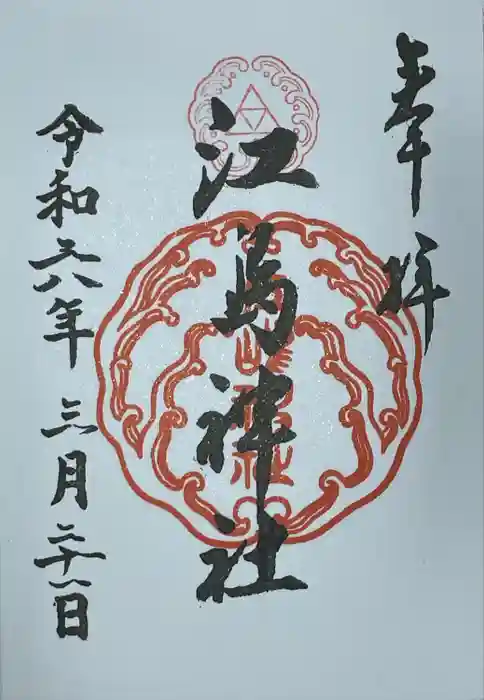 奉拝
江島神社
令和六年三月二十一日